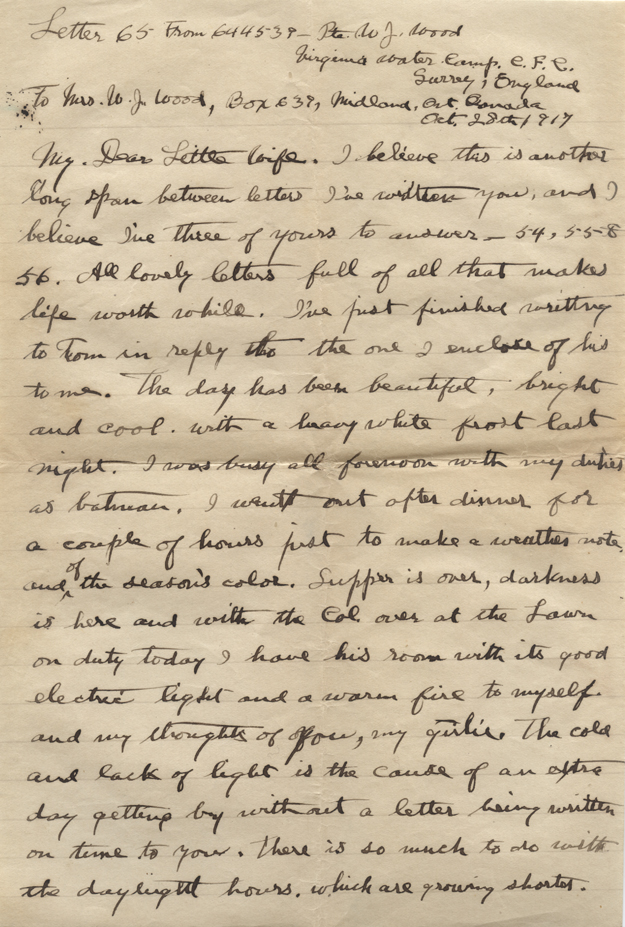 Letter 65 From 644539 - Pte. W. J. Wood
Virginia Water Camp. C. F. C.
Surrey, England
To Mrs. W. J. Wood, Box 639, Midland, Ont. Canada
Oct. 28th/1917
My. Dear Little Wife. I believe this is another
long span between letters I've written you, and I
believe I've three of yours to answer - 54, 55 &
56. All lovely letters full of all that makes
life worth while. I've just finished writting
to Tom in reply to the one I enclose of his
to me. The day has been beautiful, bright
and cool. with a heavy white frost last
night. I was busy all forenoon with my duties
as batman. I went out after dinner for
a couple of hours just to make a weather note,
and of the season's color. Supper is over, darkness
is here and with the Col. over at the Lawn
on duty today I have his room with its good
electric light and a warm fire to myself.
and my thoughts of you, my girlie. The cold
and lack of light is the cause of an extra
day getting by without a letter being written
on time to you. There is so much to do with
the daylight hours. which are growing shorter.